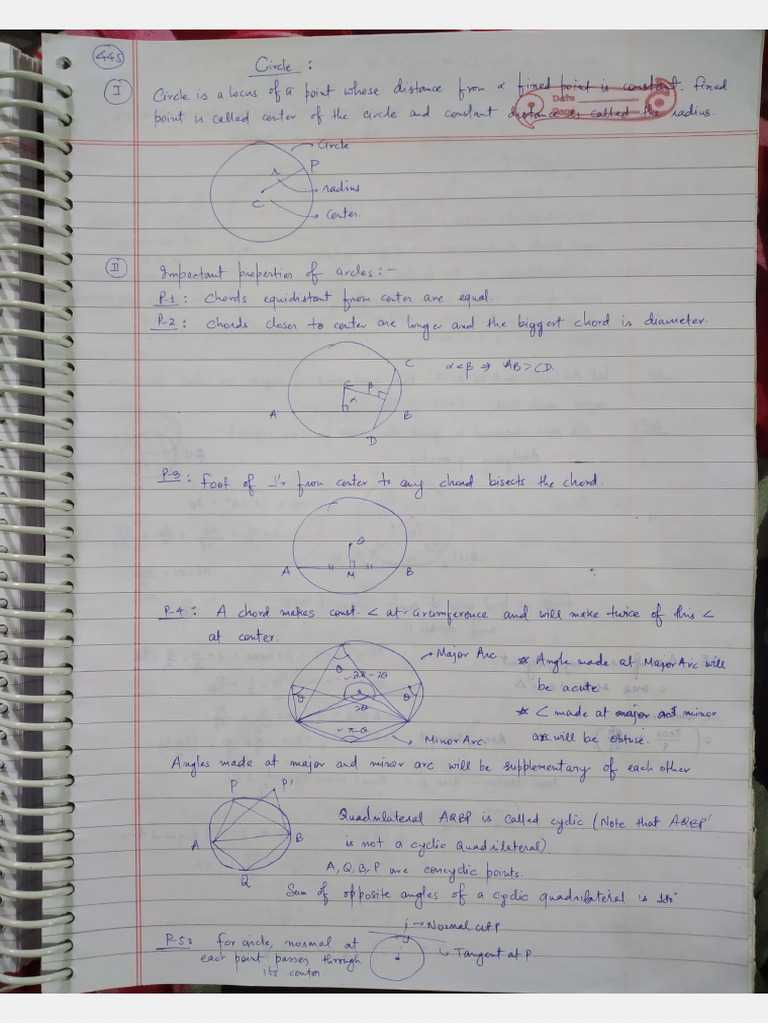 445
Circle :
I
Circle is a locus of a point whose distance from a fixed point is constant. Fixed
Date
Page
point is called center of the circle and constant distance is called the radius.
Circle
P
r
radius
C
center.
II
Important properties of circles:-
P-1 : Chords equidistant from center are equal.
P-2 : Chords closer to center are longer and the biggest chord is diameter.
C
α<β ⇒ AB>CD.
C β
α
A B
D
P-3 : Foot of ⊥'r from center to any chord bisects the chord.
O
A M B
P-4 : A chord makes const. ∠ at circumference and will make twice of this ∠
at center.
Major Arc
θ
2π-2θ
θ θ
2θ
π-θ
Minor Arc.
* Angle made at Major Arc will
be acute
* ∠ made at minor
arc will be obtuse.
Angles made at major and minor arc will be supplementary of each other
P P'
A B
Q
Quadrilateral AQBP is called cyclic (Note that AQBP'
is not a cyclic Quadrilateral)
A, Q, B, P are concyclic points.
Sum of opposite angles of a cyclic quadrilateral is
Normal at P
P-5: for circle, normal at
each point passes through
its center.
Tangent at P